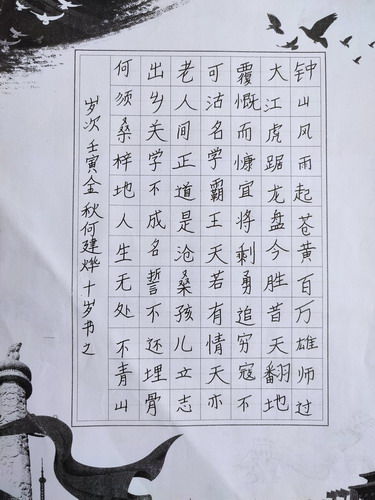 钟山风雨起苍黄百万雄师过
大江虎踞龙盘今胜昔天翻地
覆慨而慷宜将剩勇追穷寇不
可沽名学霸王天若有情天亦
老人间正道是沧桑孩儿立志
出乡关学不成名誓不还埋骨
何须桑梓地人生无处不青山
岁次壬寅金秋何建烨十岁书之